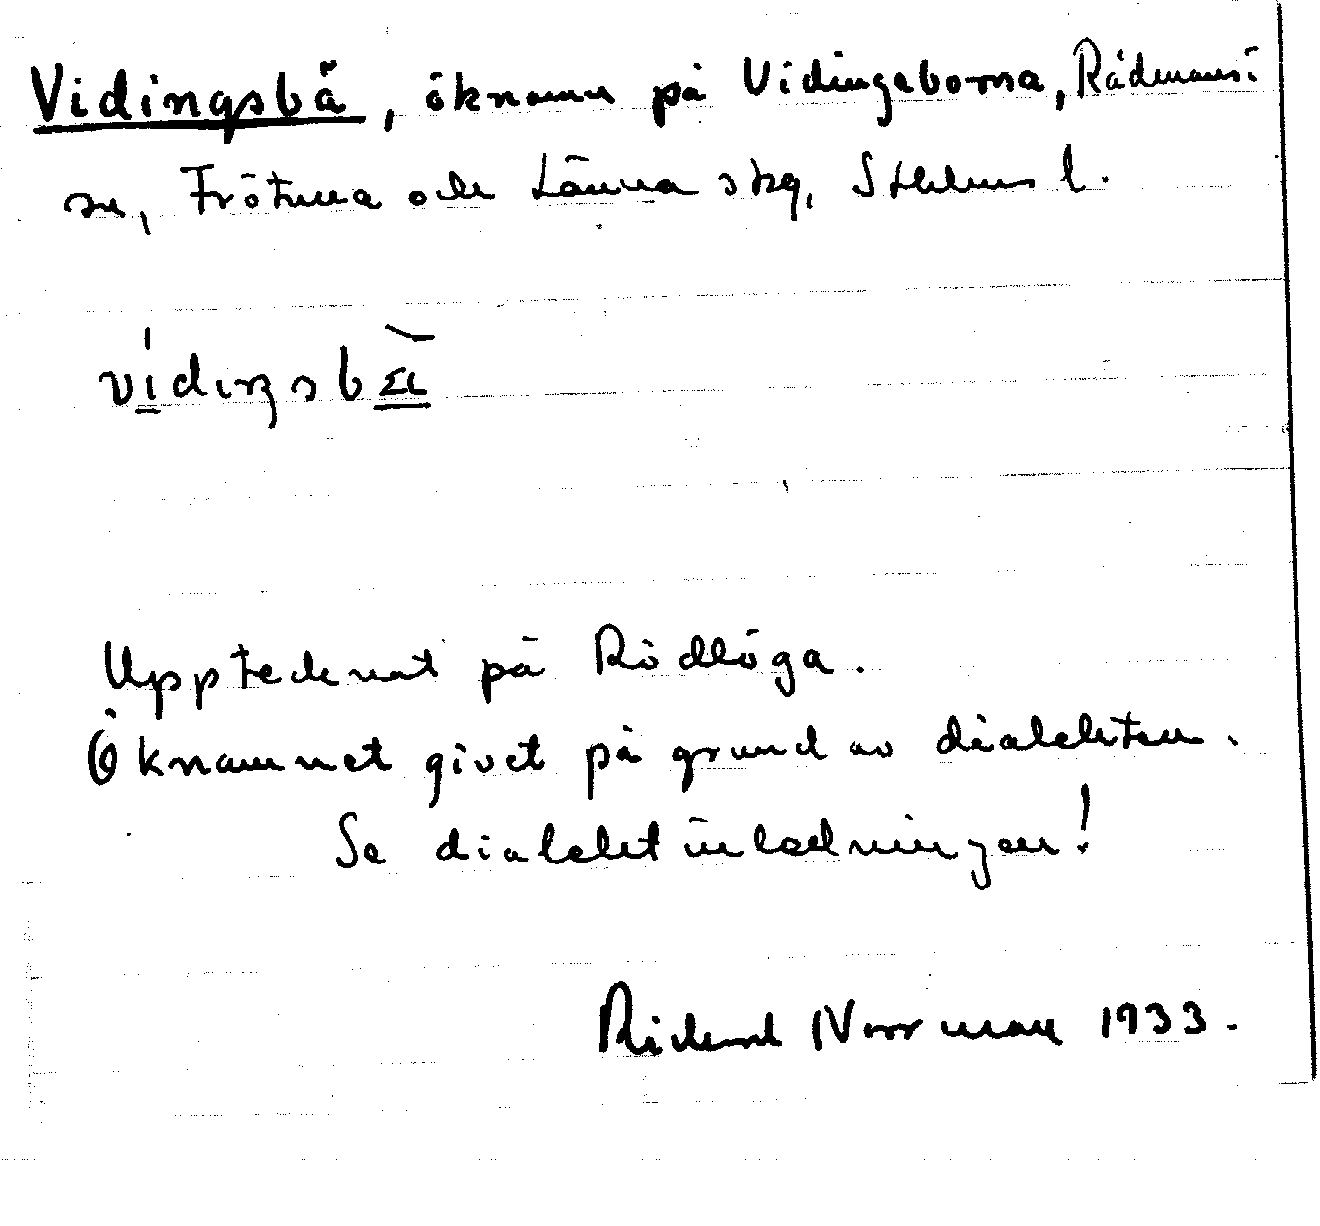 Vidingsbä, öknamn på Vidingeborna, Rådmansö
sn, Frötuna och Länna skg, Sthlms l.
vidiŋsbä
Upptecknat på Rödlöga.
Öknamnet givet på grund av dialekten.
Se dialektinledningen!
Rickard Norrman 1933.